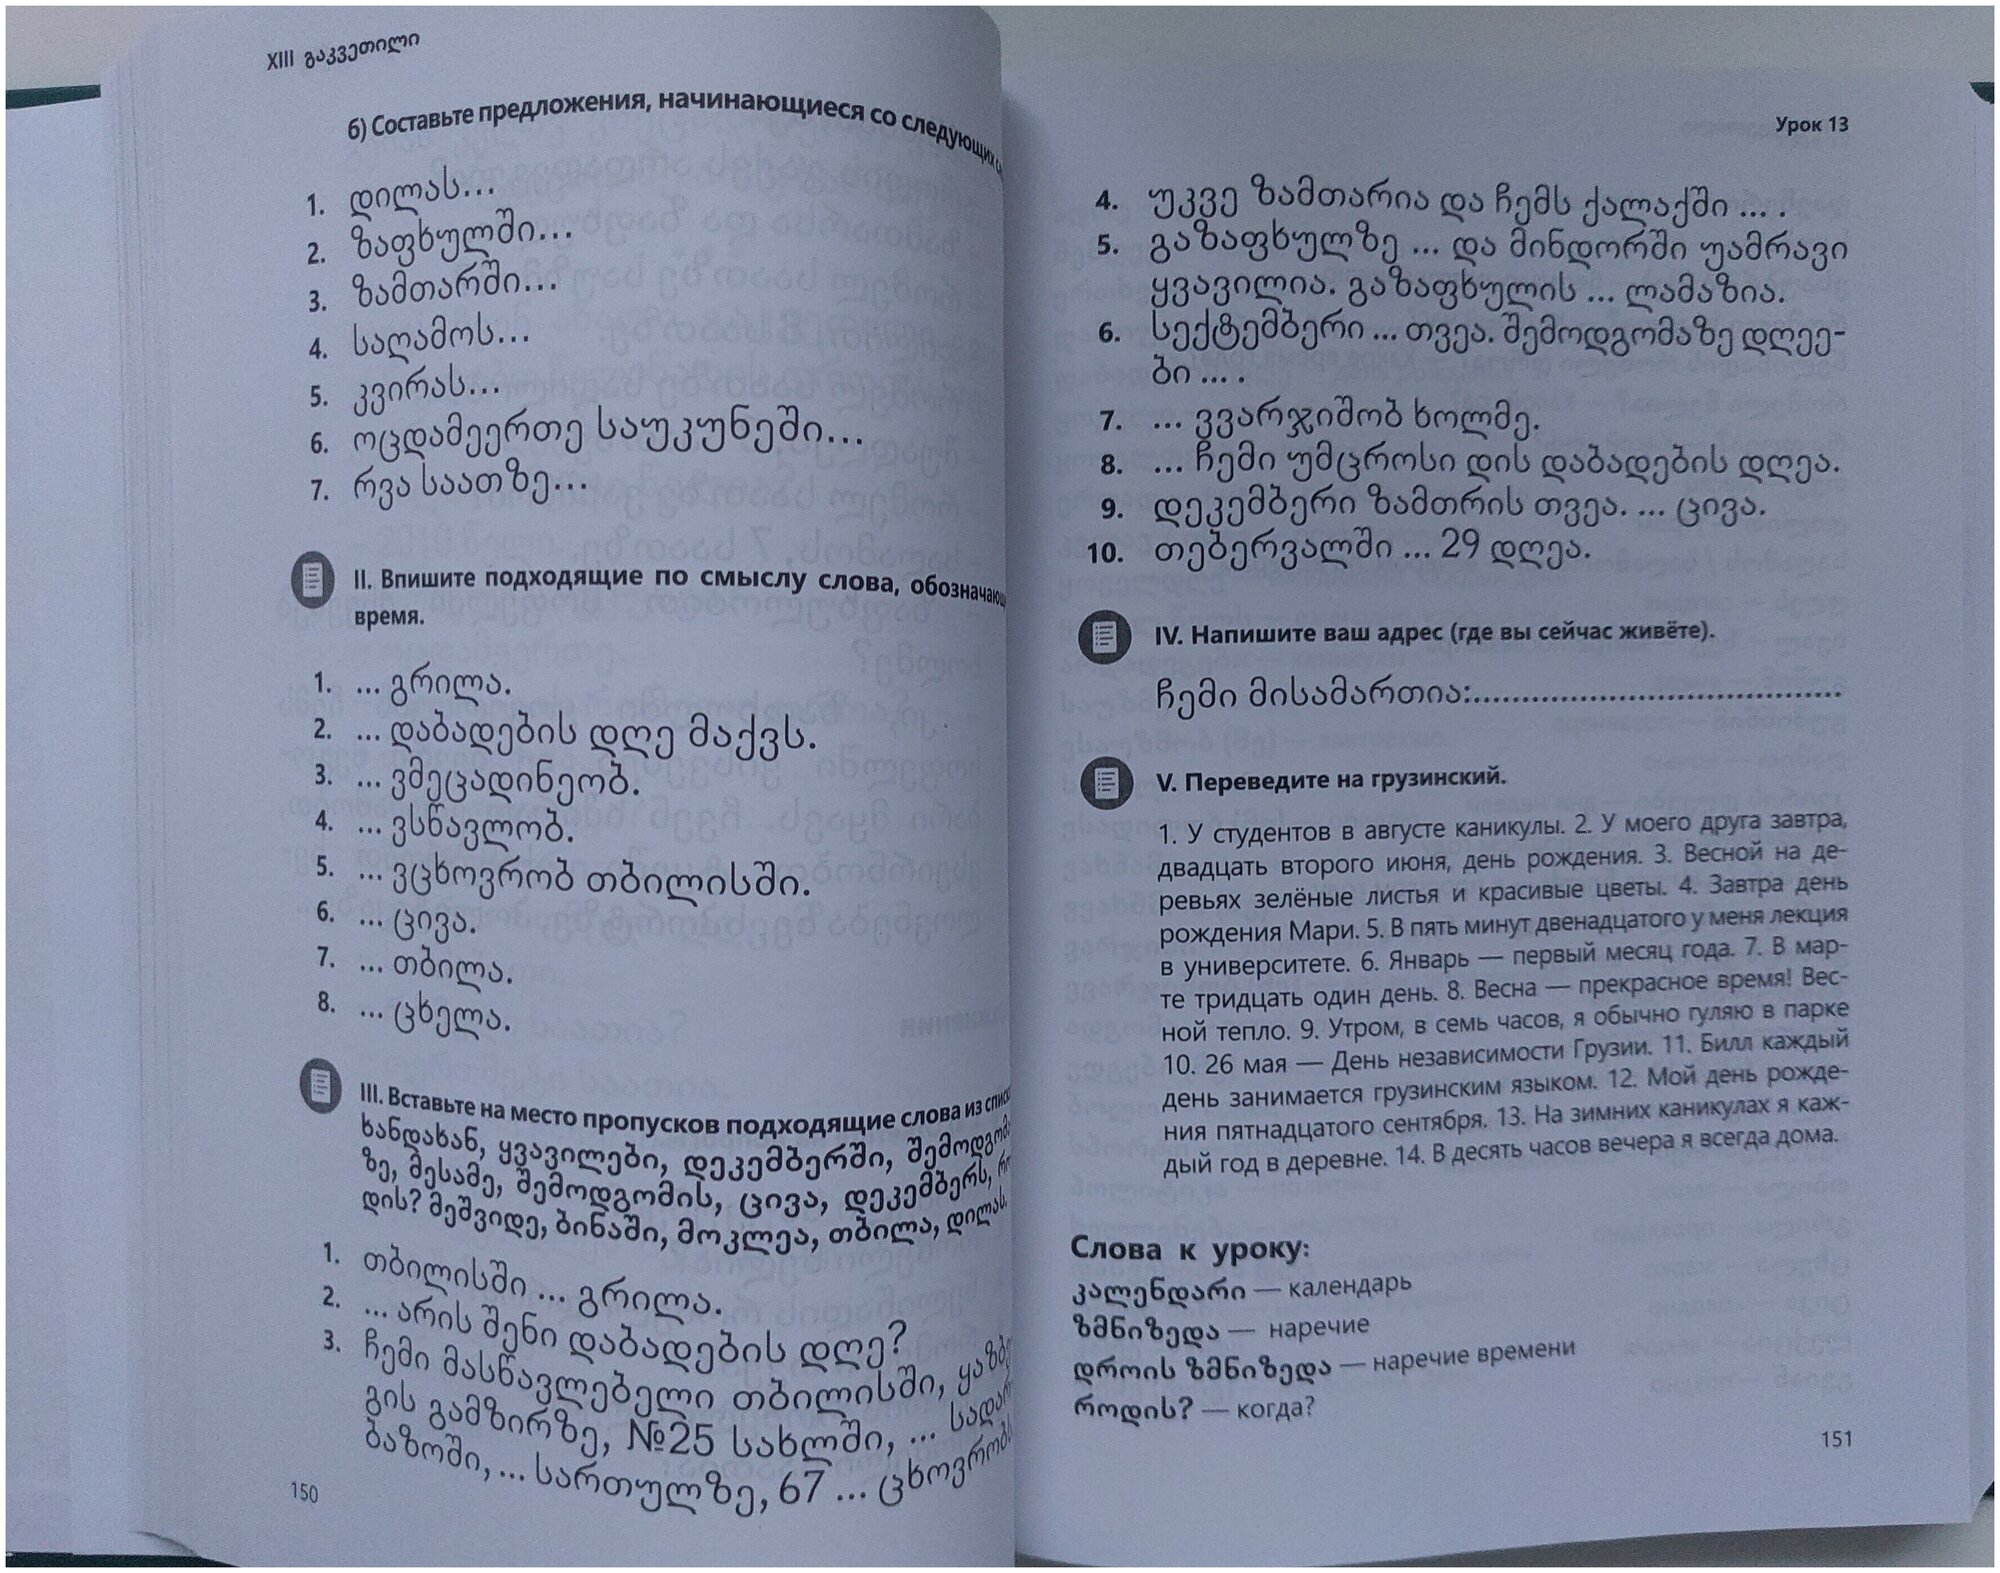 XIII გაკვეთილი
б) Составьте предложения, начинающиеся со следующих
1. დილას...
2. ზაფხულში...
3. ზამთარში...
4. საღამოს...
5. კვირას...
6. ოცდამეერთე საუკუნეში...
7. რვა საათზე...
II. Впишите подходящие по смыслу слова, обозначающ
время.
1. ... გრილა.
2. ... დაბადების დღე მაქვს.
3. ... ვმეცადინეობ.
4. ... ვსწავლობ.
5. ... ვცხოვრობ თბილისში.
6. ... ცივა.
7. ... თბილა.
8. ... ცხელა.
III. Вставьте на место пропусков подходящие слова из списк
ხანდახან, ყვავილები, დეკემბერში, შემოდგომა
ზე, მესამე, შემოდგომის, ცივა, დეკემბერს, რო
დის? მეშვიდე, ბინაში, მოკლეა, თბილა, დილას.
1. თბილისში ... გრილა.
2. ... არის შენი დაბადების დღე?
3. ჩემი მასწავლებელი თბილისში, ყაზბე
გის გამზირზე, №25 სახლში, ... სადარ
ბაზოში, ... სართულზე, 67 ... ცხოვრობს
150
Урок 13
4. უკვე ზამთარია და ჩემს ქალაქში ... .
5. გაზაფხულზე ... და მინდორში უამრავი
ყვავილია. გაზაფხულის ... ლამაზია.
6. სექტემბერი ... თვეა. შემოდგომაზე დღეე-
ბი ... .
7. ... ვვარჯიშობ ხოლმე.
8. ... ჩემი უმცროსი დის დაბადების დღეა.
9. დეკემბერი ზამთრის თვეა. ... ცივა.
10. თებერვალში ... 29 დღეა.
IV. Напишите ваш адрес (где вы сейчас живёте).
ჩემი მისამართია:.......................................
V. Переведите на грузинский.
1. У студентов в августе каникулы. 2. У моего друга завтра,
двадцать второго июня, день рождения. 3. Весной на де-
ревьях зелёные листья и красивые цветы. 4. Завтра день
рождения Мари. 5. В пять минут двенадцатого у меня лекция
в университете. 6. Январь — первый месяц года. 7. В мар-
те тридцать один день. 8. Весна — прекрасное время! Вес-
ной тепло. 9. Утром, в семь часов, я обычно гуляю в парке
10. 26 мая — День независимости Грузии. 11. Билл каждый
день занимается грузинским языком. 12. Мой день рожде-
ния пятнадцатого сентября. 13. На зимних каникулах я каж-
дый год в деревне. 14. В десять часов вечера я всегда дома.
Слова к уроку:
კალენდარი — календарь
ზმნიზედა — наречие
დროის ზმნიზედა — наречие времени
როდის? — когда?
151